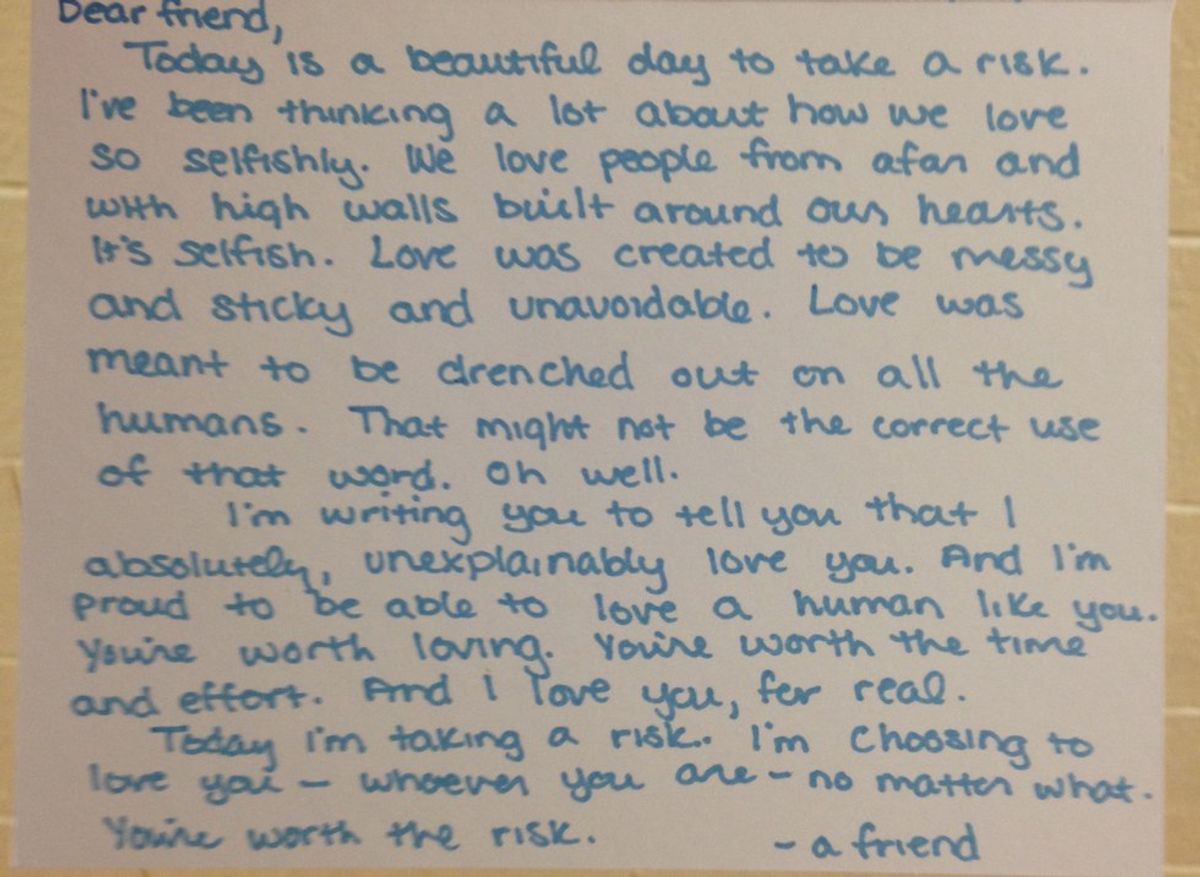 Dear friend,
Today is a beautiful day to take a risk.
I've been thinking a lot about how we love
so selfishly. We love people from afar and
with high walls built around our hearts.
It's selfish. Love was created to be messy
and sticky and unavoidable. Love was
meant to be drenched out on all the
humans. That might not be the correct use
of that word. Oh well.
I'm writing you to tell you that I
absolutely, unexplainably love you. And I'm
proud to be able to love a human like you.
You're worth loving. You're worth the time
and effort. And I love you, fer real.
Today I'm taking a risk. I'm choosing to
love you - whoever you are - no matter what.
You're worth the risk.
- a friend